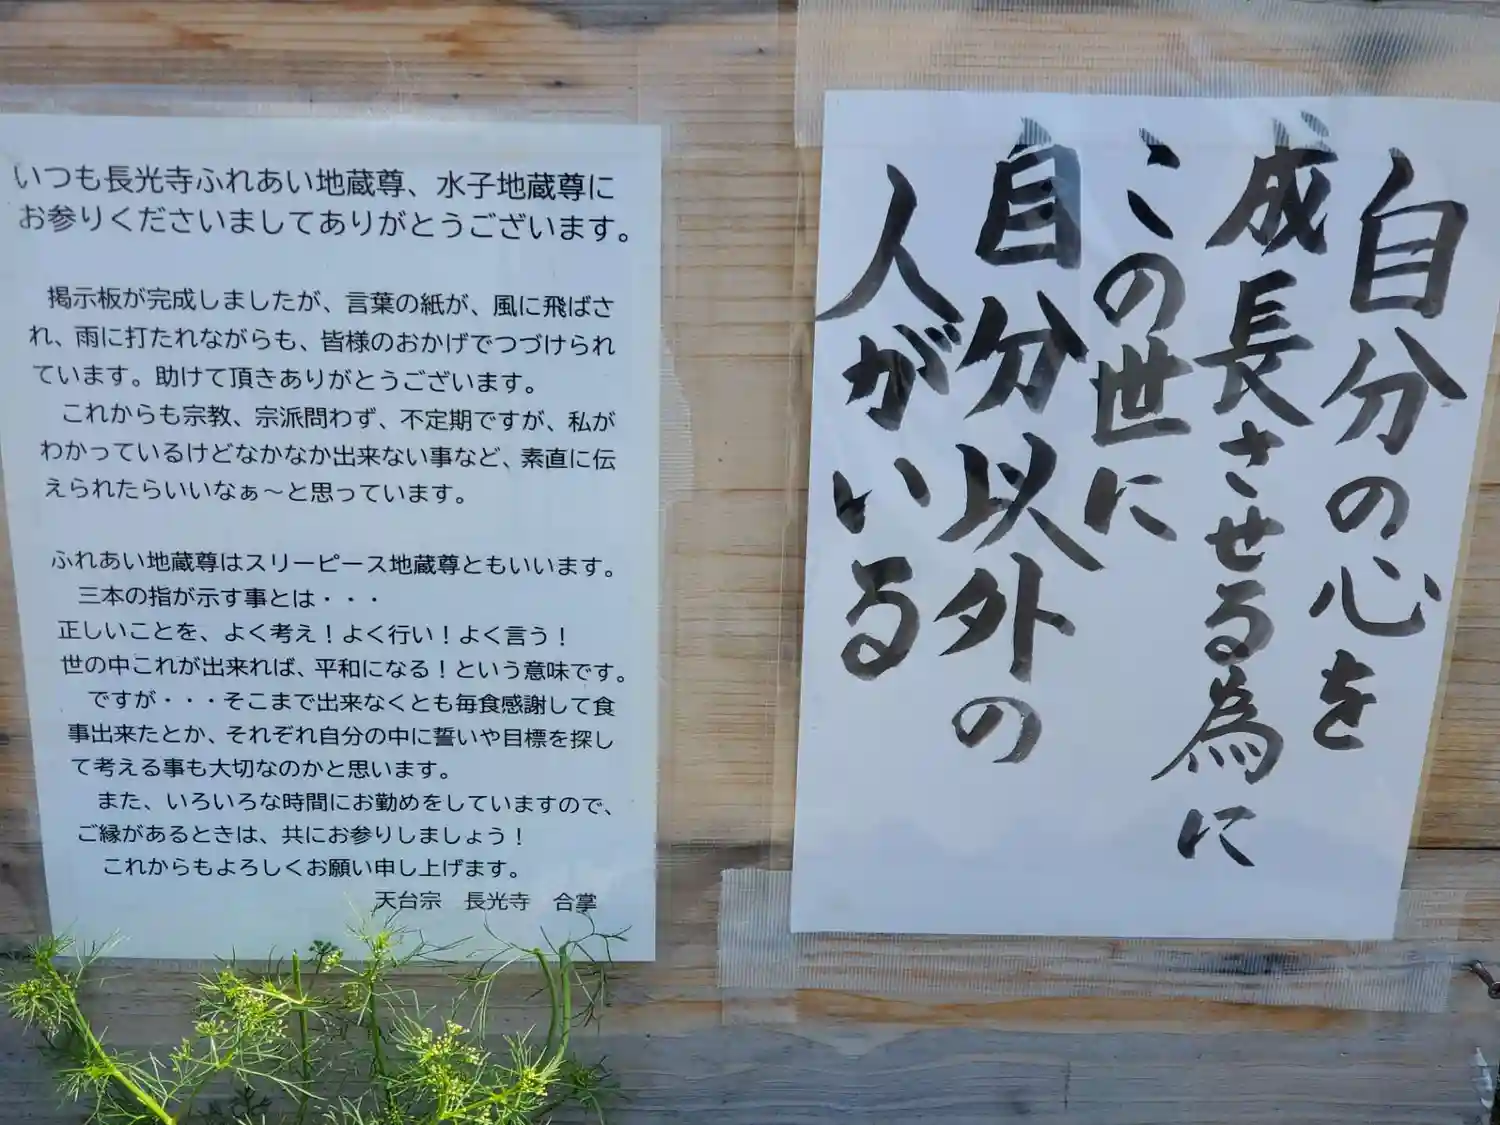 いつも長光寺ふれあい地蔵尊、水子地蔵尊に
お参りくださいましてありがとうございます。
掲示板が完成しましたが、言葉の紙が、風に飛ばさ
れ、雨に打たれながらも、皆様のおかげでつづけられ
ています。助けて頂きありがとうございます。
これからも宗教、宗派問わず、不定期ですが、私が
わかっているけどなかなか出来ない事など、素直に伝
えられたらいいなぁ～と思っています。
ふれあい地蔵尊はスリーピース地蔵尊ともいいます。
三本の指が示す事とは・・・
正しいことを、よく考え！よく行い！よく言う！
世の中これが出来れば、平和になる！という意味です。
ですが・・・そこまで出来なくとも毎食感謝して食
事出来たとか、それぞれ自分の中に誓いや目標を探し
て考える事も大切なのかと思います。
また、いろいろな時間にお勤めをしていますので、
ご縁があるときは、共にお参りしましょう！
これからもよろしくお願い申し上げます。
天台宗　長光寺　合掌
自分の心を
成長させる為に
この世に
自分以外の
人がいる